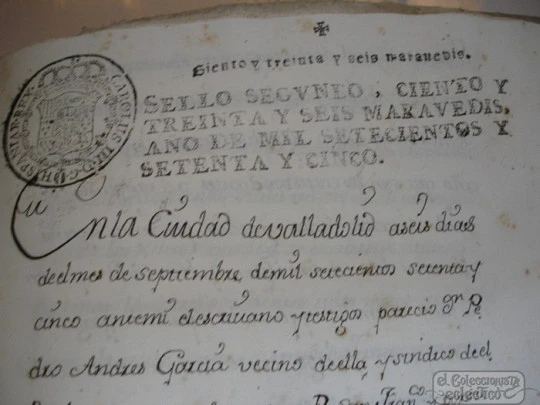 Ciento y treinta y seis maravedis.
SELLO SEGVNDO, CIENTO Y
TREINTA Y SEIS MARAVEDIS,
AÑO DE MIL SETECIENTOS Y
SETENTA Y CINCO.
CAROLUS III D G HISPANIAR REX
En la Ciudad de valladolid a seis dias
de el mes de septiembre de mil setecientos setenta y
cinco ante mi el escrivano y testigos parecio Dn Pe
dro Andres Garcia vecino de ella, y sindico de el
el Coleccionista
ecléctico